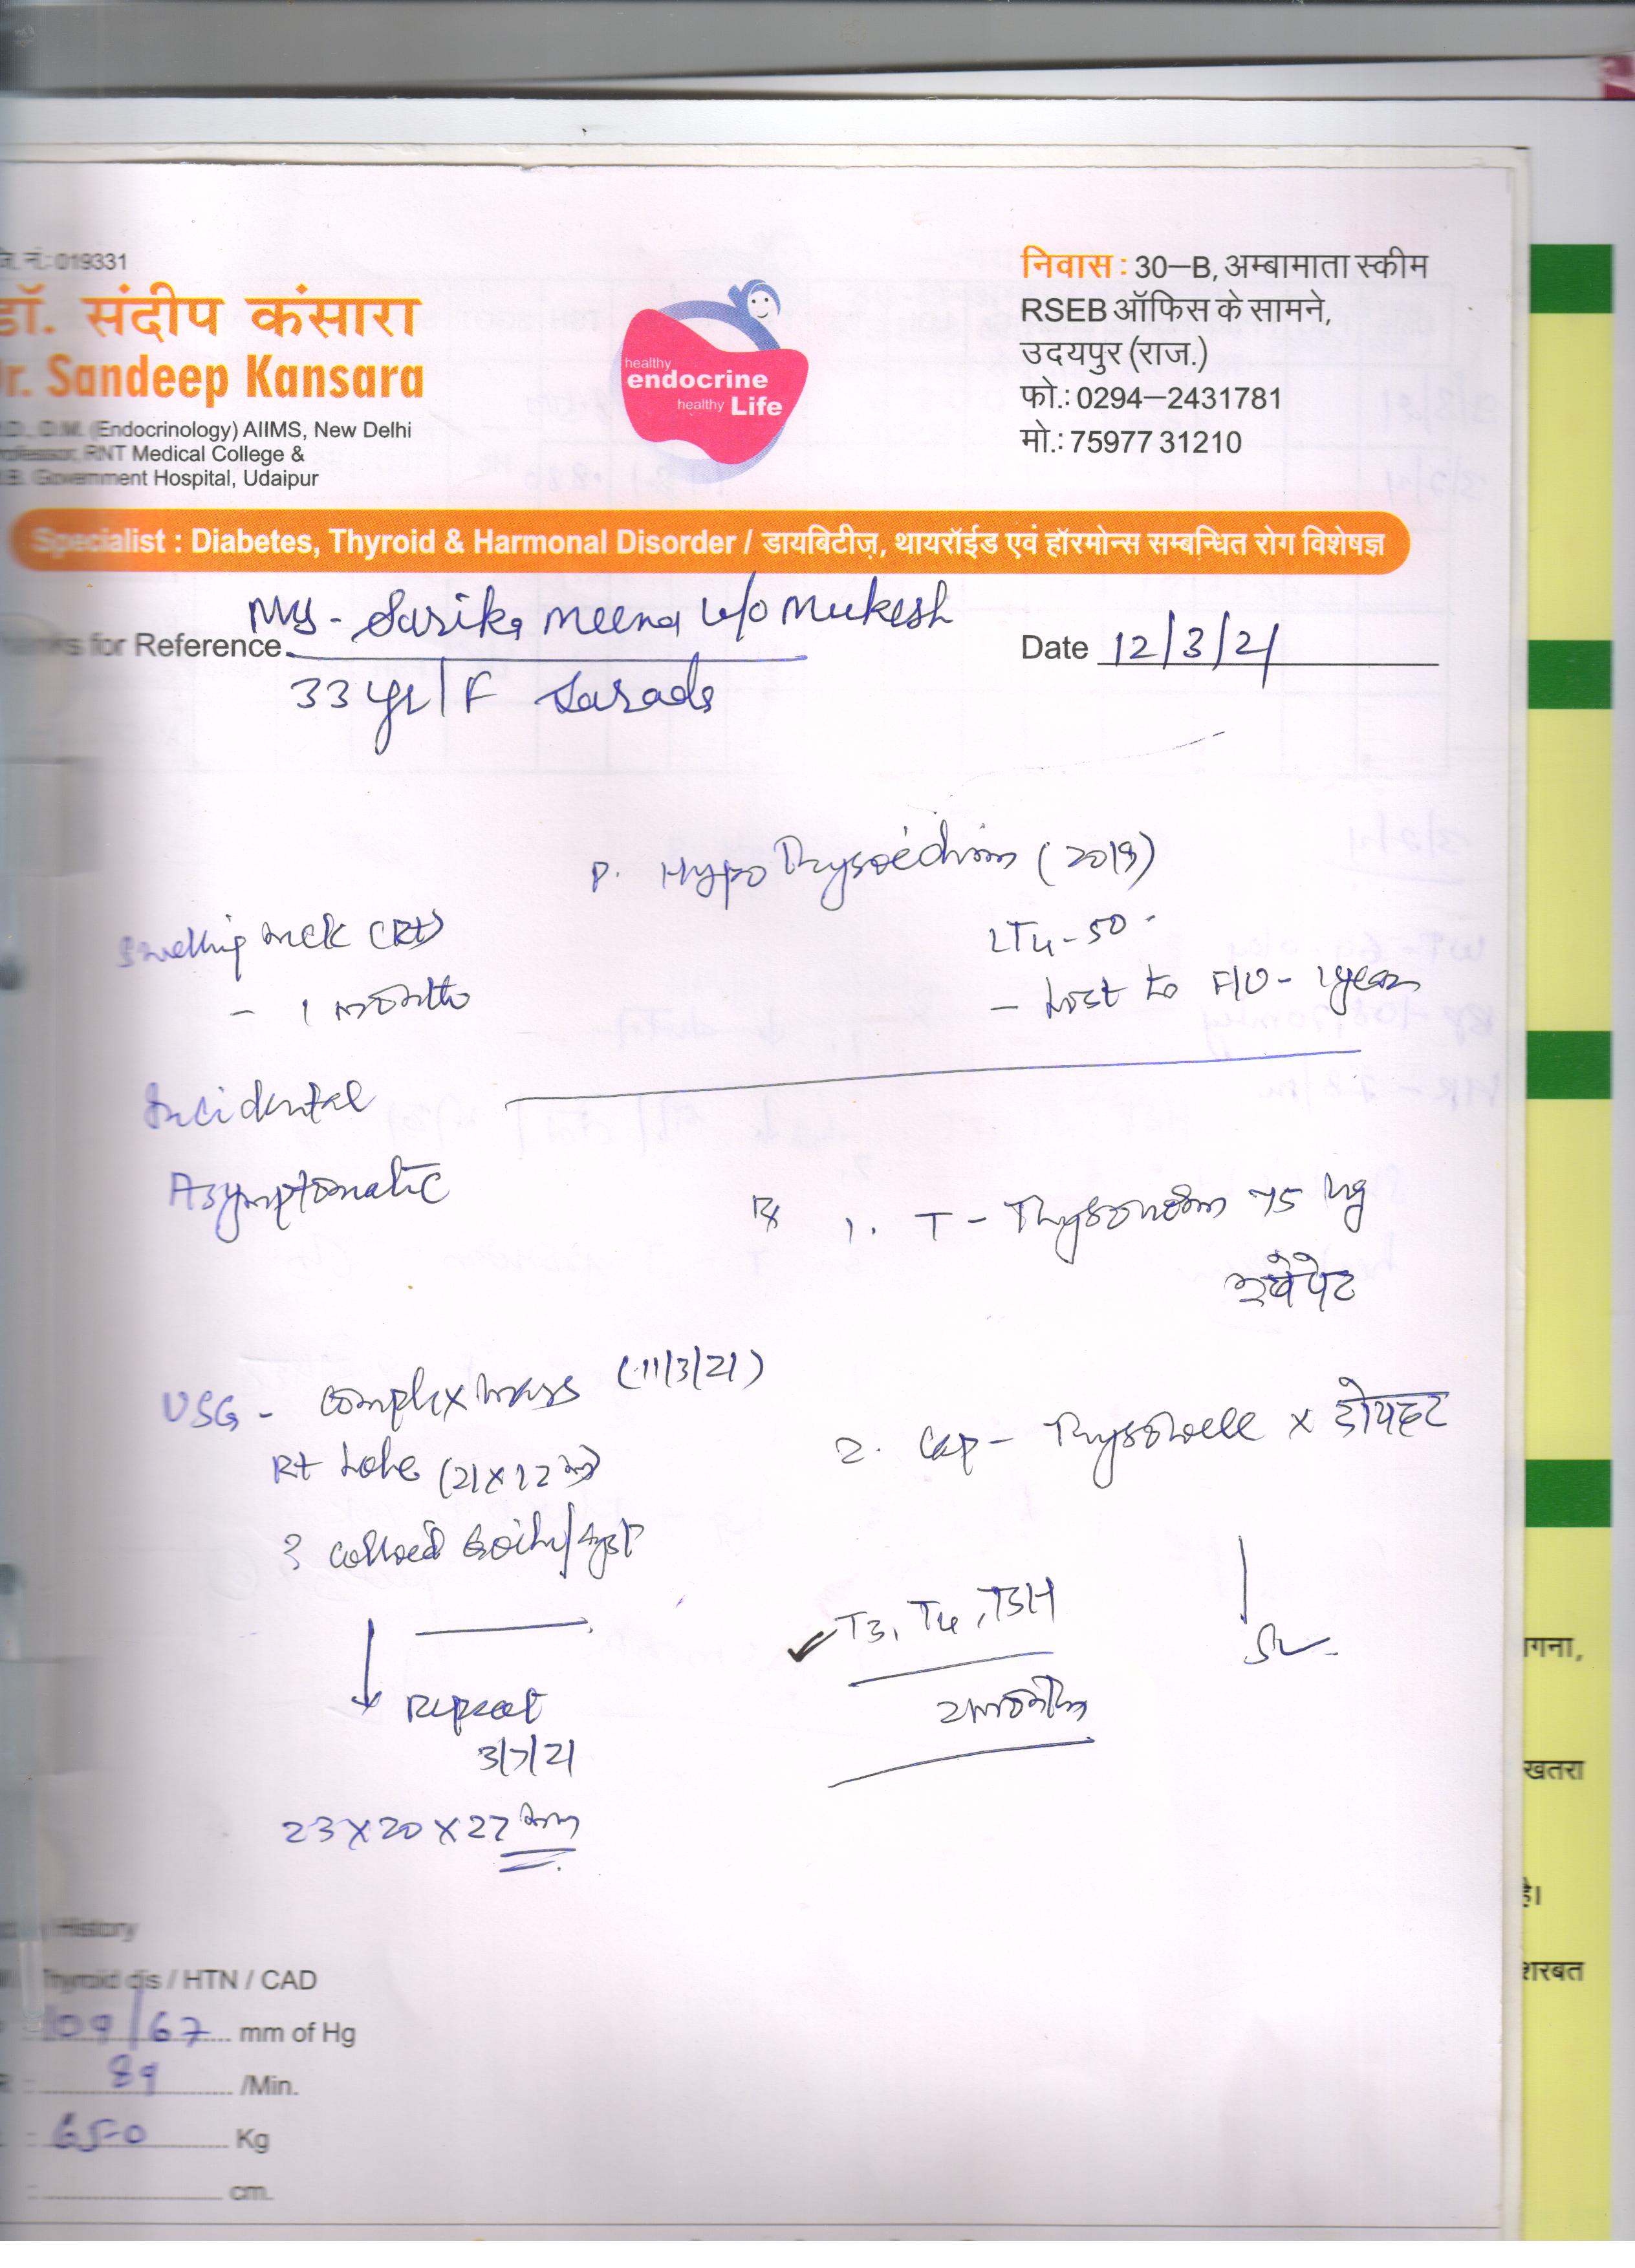 नं.: 019331
डॉ. संदीप कंसारा
Dr. Sandeep Kansara
D.M. (Endocrinology) AIIMS, New Delhi
Professor, RNT Medical College &
Government Hospital, Udaipur
healthy
endocrine
healthy Life
निवास : 30–B, अम्बामाता स्कीम
RSEB ऑफिस के सामने,
उदयपुर (राज.)
फो.: 0294–2431781
मो.: 75977 31210
Specialist : Diabetes, Thyroid & Harmonal Disorder / डायबिटीज़, थायरॉईड एवं हॉरमोन्स सम्बन्धित रोग विशेषज्ञ
Sarika Meena w/o Mukesh
for Reference
Date 12/3/21
33 yr/F Sarada
P. Hypothyroidism (2019)
Swelling neck (Rt)
- 1 month
LT4-50
- Lost to F/U - 1 year
Incidental
Asymptomatic
Rx 1. T - Thyronorm 75 µg
USG - complex mass (11/3/21)
Rt Lobe (21x12 mm)
? colloid goitre/cyst
2. Cap - x दोपहर
T3, T4, TSH
Repeat
3/7/21
23x20x27 mm
History
Thyroid dis / HTN / CAD
109/67 mm of Hg
89 /Min.
65-0 Kg
cm.
गना,
खतरा
है।
शरबत